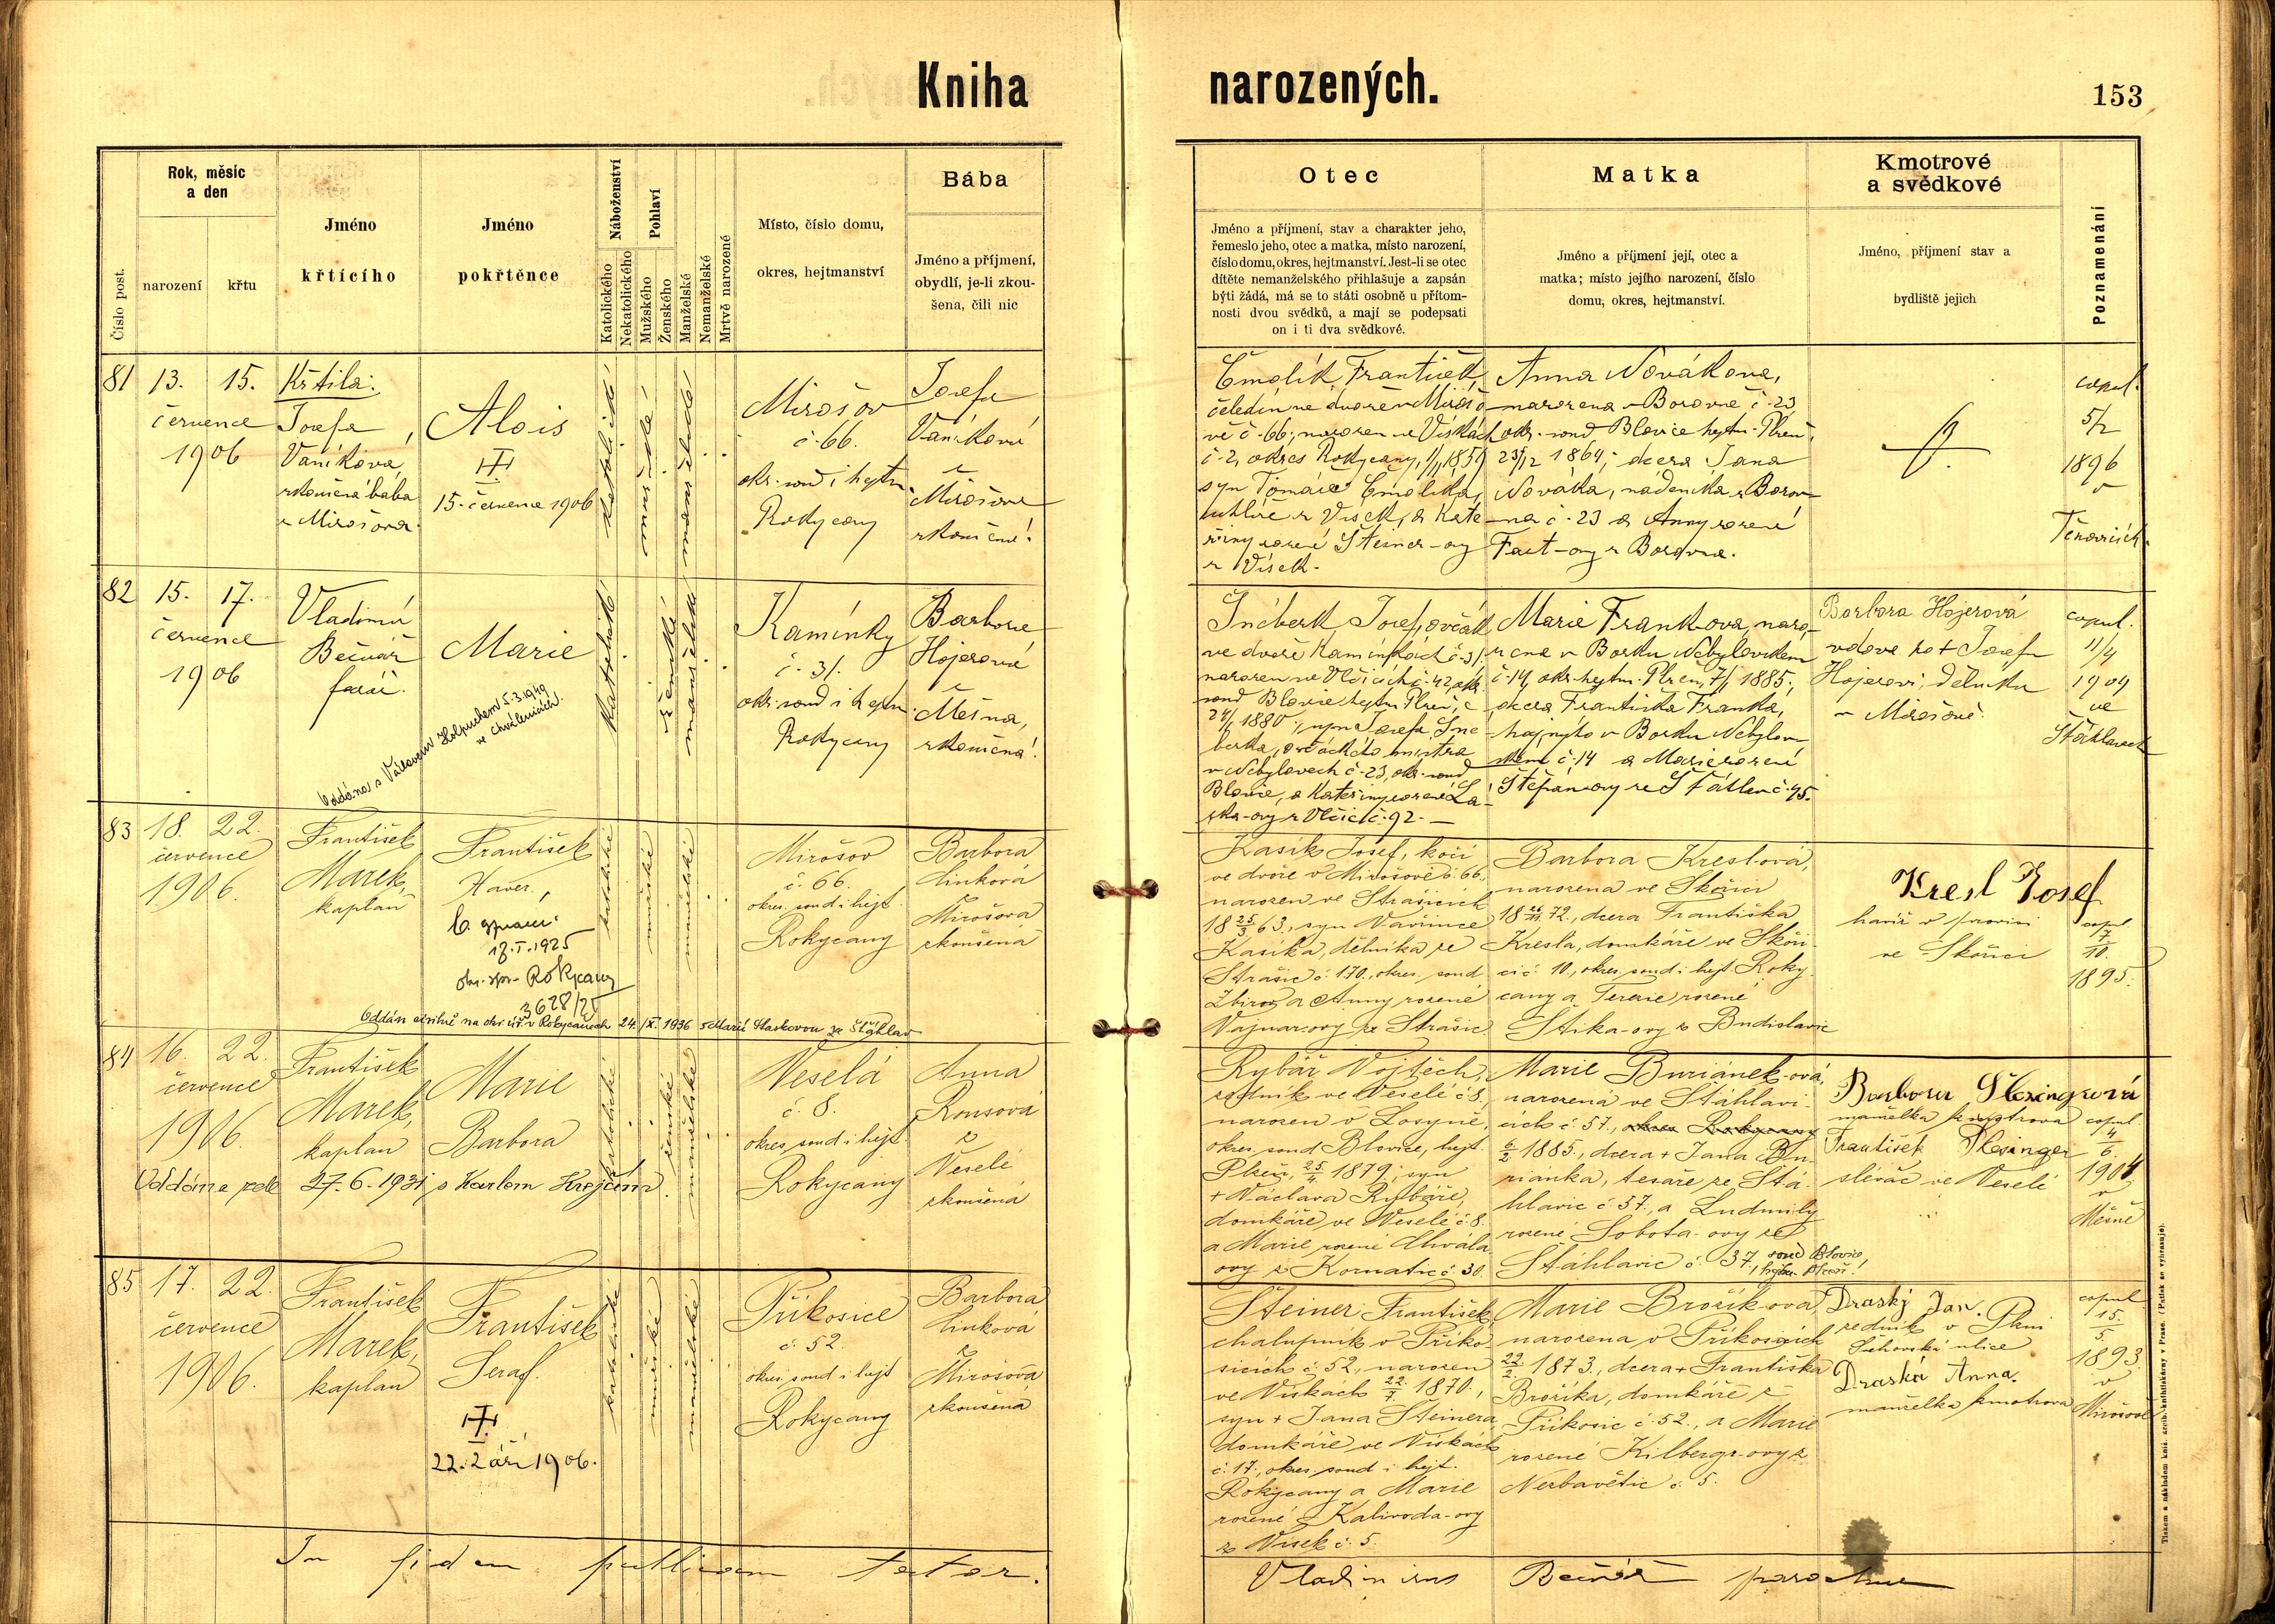 Kniha narozených.
153
Číslo post.
Rok, měsíc
a den
narození
křtu
Jméno
křtícího
Jméno
pokřtěnce
Náboženství
Katolického
Nekatolického
Pohlaví
Mužského
Ženského
Manželské
Nemanželské
Mrtvě narozené
Místo, číslo domu,
okres, hejtmanství
Bába
Jméno a příjmení,
obydlí, je-li zkou-
šena, čili nic
Otec
Jméno a příjmení, stav a charakter jeho,
řemeslo jeho, otec a matka, místo narození,
číslo domu, okres, hejtmanství. Jest-li se otec
dítěte nemanželského přihlašuje a zapsán
býti žádá, má se to státi osobně u přítom-
nosti dvou svědků, a mají se podepsati
on i ti dva svědkové.
Matka
Jméno a příjmení její, otec a
matka; místo jejího narození, číslo
domu, okres, hejtmanství.
Kmotrové
a svědkové
Jméno, příjmení stav a
bydliště jejich
Poznamenání
81
13.
července
1906
15.
Křtila:
Josefa
Vaníková,
zkoušená bába
z Mirošova.
Alois
15. července 1906
katolické
mužské
manželské
Mirošov
č. 66.
okr. soud i hejtm.
Rokycany
Josefa
Vaníková
z
Mirošova
zkoušená!
Čmolík František,
čeledín ve dvoře v Mirošo-
vě č. 66, narozen ve Vískách
č. 2, okres Rokycany,
syn Tomáše Čmolíka,
z Vísek, a Kate-
řiny rozené Šteiner-ovy
z Vísek.
Anna Nováková,
narozena v Borovně č. 23
okr. soud Blovice hejtm. Plzeň,
23/12 1864; dcera Jana
Nováka, nádeníka z Borov-
na č. 23 a Anny rozené
Faut-ovy z Borovna.
copul.
5/2
1896
v
82
15.
července
1906
17.
Vladimír
Bečvář
farář.
Marie
Oddána s Václavem Holpuchem 5.3.1949
ve Chválenicích.
katolické
ženské
manželské
Kamínky
č. 31.
okr. soud i hejtm.
Rokycany
Barbora
Hojerová
z
Mešna,
zkoušená!
Šnéberk Josef, ovčák
ve dvoře Kamínkách č. 31.
narozen ve Vlčicích č. 42, okr.
soud Blovice hejtm. Plzeň,
1880, syn Josefa Šné-
berka, ovčáckého mistra
v Nebylovech č. 23, okr. soud
Blovice, a Kateřiny rozené La-
ska-ovy z Vlčic č. 92. —
Marie Frank-ova, naro-
zena v Borku Nebylovském
č. 14, okr. hejtm. Plzeň, 7/1 1885;
dcera Františka Franka,
hajného v Borku Nebylov-
ském č. 14 a Marie rozené
Štěpán-ovy ze Šťáhlav č. 45.
Barbora Hojerová
vdova po + Josefu
Hojerovi, dělníku
v Mirošově.
copul.
11/4
1904
ve
Šťáhlavech
83
18.
července
1906.
22.
František
Marek,
kaplan
František
Xaver.
18.I.1925
okr. spr. Rokycany
3628/25
Oddán civilně na okr. úř. v Rokycanech 24./X. 1936 s Marií Slavkovou ze Šťáhlav
katolické
mužské
manželské
Mirošov
č. 66.
okres. soud i hejt.
Rokycany
Barbora
Linková
z
Mirošova
zkoušená
Kasík Josef, kočí
ve dvoře v Mirošově č. 66,
narozen ve Strašicích
18 25/3 63., syn Vavřince
Kasíka, dělníka ze
Strašic č. 170, okres. soud
Zbirov a Anny rozené
Vajnar-ovy ze Strašic
Barbora Kresl-ová,
narozena ve Skořici
72., dcera Františka
Kresla, domkáře ve Skoři-
ci č. 10, okres, soud i hejt. Roky-
cany a Terezie rozené
Stika-ovy z Budislavic
Kresl Josef
havíř v
ve Skořici
copul.
7
10.
1895.
84
16.
července
1906.
22.
František
Marek,
kaplan
Marie
Barbora
Oddána zde 27.6.1931 s Karlem Krejčím.
katolické
ženské
manželské
Veselá
č. 8.
okres, soud i hejt.
Rokycany
Anna
Rousová
z
Veselé
zkoušená
Rybář Vojtěch,
rodník ve Veselé č. 8.,
narozen v Losyně,
okres soud Blovice, hejt.
Plzeň, 25/4 1879; syn
+ Václava Rybáře,
domkáře ve Veselé č. 8.
a Marie rozené Chvála-
ovy z Kornatic č. 30.
Marie Buriánek-ová,
narozená ve Šťáhlavi-
cích č. 57., okres Rokycany
6/2 1885., dcera + Jana Bu-
riánka, tesaře ze Šťá-
hlavic č. 57., a Ludmily
rozené Sobota-ovy ze
Šťáhlavic č. 37, soud Blovice,
hejtm. Plzeň!
Barbora Plesingrová
manželka kmotrova
František Plesinger
slévač ve Veselé
copul.
4
6.
1904
v
Mešně
85
17.
července
1906.
22.
František
Marek,
kaplan
František
Seraf.
22. září 1906.
katolické
mužské
manželské
Příkosice
č. 52.
okres, soud i hejt
Rokycany
Barbora
Linková
z
Mirošova
zkoušená
Šteiner František,
chalupník v Příko-
sicích č. 52., narozen
ve Vískách 22/7 1870.,
syn + Jana Šteinera
domkáře ve Vískách
č. 17., okres soud i hejt.
Rokycany a Marie
rozené Kalivoda-ovy
z Vísek č. 5.
Marie Brožík-ova
narozena v Příkosicích
22/2 1873., dcera + Františka
Brožíka, domkáře z
Příkosic č. 52., a Marie
rozené Kilbergr-ovy z
Nezbavětic č. 5.
Draský Jan.
v Plzni
ulice
Draská Anna.
manželka kmotrova
copul.
15.
5.
1893.
v
Mirošově
In fidem publicam testor:
Vladimirus Bečvář parochus
Tiskem a nákladem kníž. arcib. knihtiskárny v Praze. (Patisk se vyhrazuje).